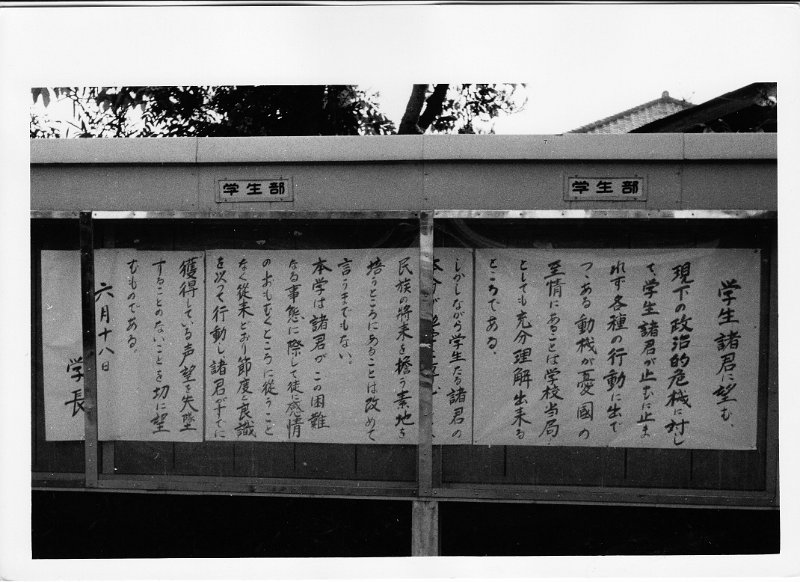 学生部
学生部
学生諸君に望む、
現下の政治的危機に対し
て、学生諸君が止むに止ま
れず各種の行動に出で
つゝある動機が憂國の
至情にあることは学校当局
としても充分理解出来る
ところである。
しかしながら学生たる諸君の
本分が
民族の将来を擔う素地を
培うところにあることは改めて
言うまでもない。
本学は諸君がこの困難
なる事態に際して徒に感情
のおもむくところに従うこと
なく従来どおり節度と良識
を以って行動し諸君がすでに
獲得している声望を失墜
することのないことを切に望
むものである。
六月十八日
学長